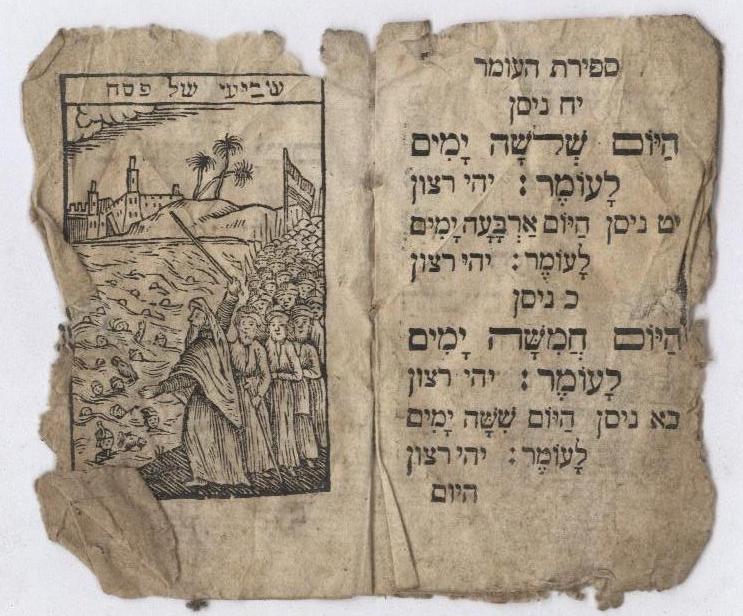 ספירת העומר
יח ניסן
הַיּוֹם שְׁלֹשָׁה יָמִים
לָעוֹמֶר: יהי רצון
יט ניסן הַיּוֹם אַרְבָּעָה יָמִים
לָעוֹמֶר: יהי רצון
כ ניסן
הַיּוֹם חֲמִשָּׁה יָמִים
לָעוֹמֶר: יהי רצון
כא ניסן הַיּוֹם שִׁשָּׁה יָמִים
לָעוֹמֶר: יהי רצון
היום
שביעי של פסח